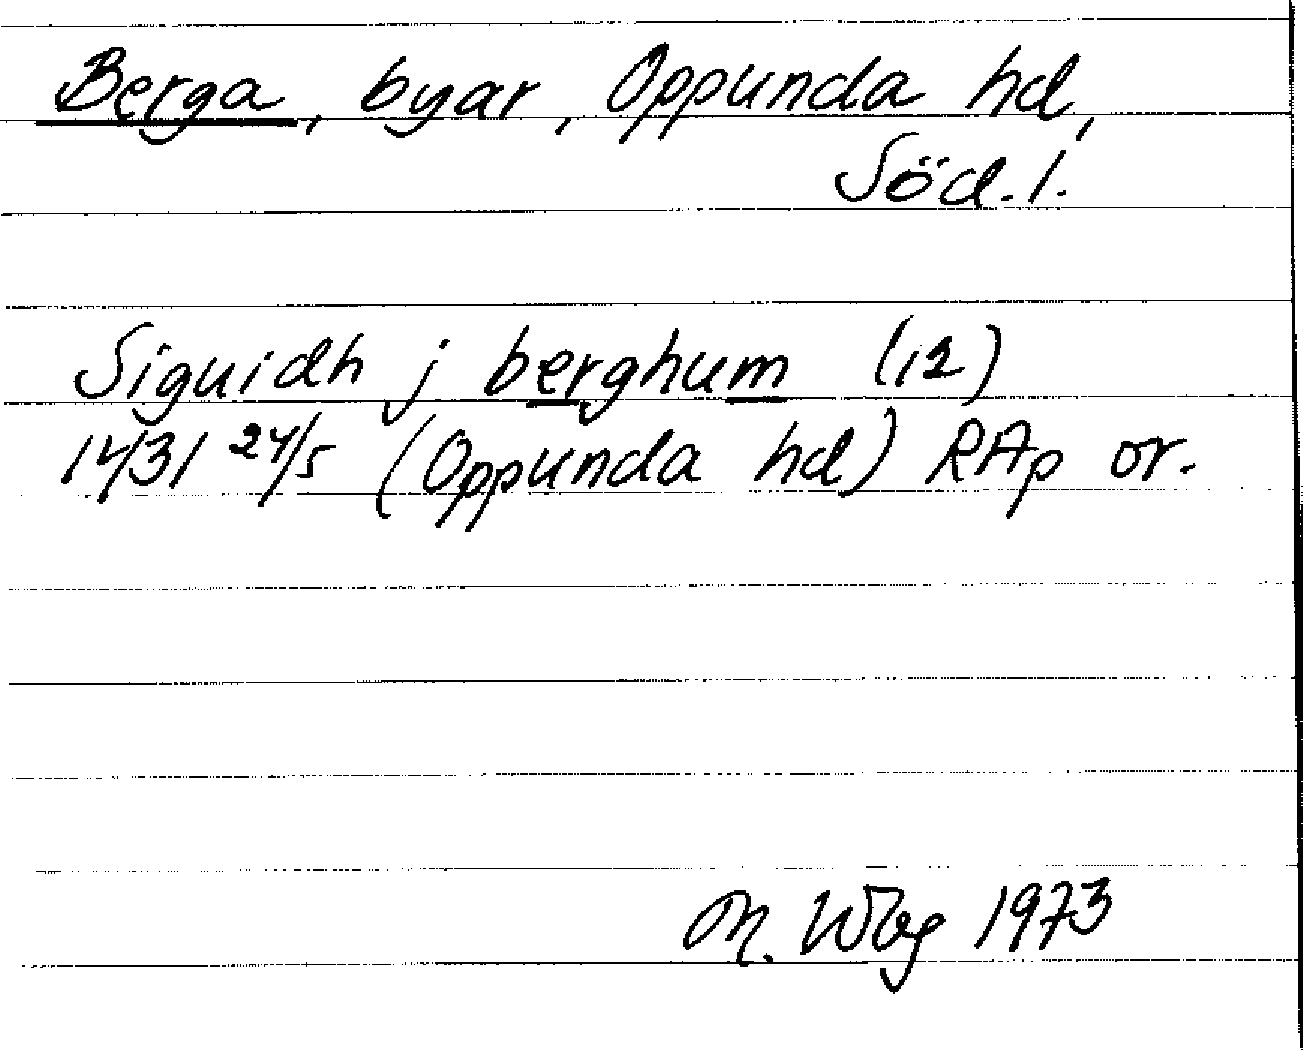 Berga, byar, Oppunda hd,
Söd. l.
Siguidh j berghum (12)
1431 24/5 (Oppunda hd) RAp or.
M. Wbg 1973